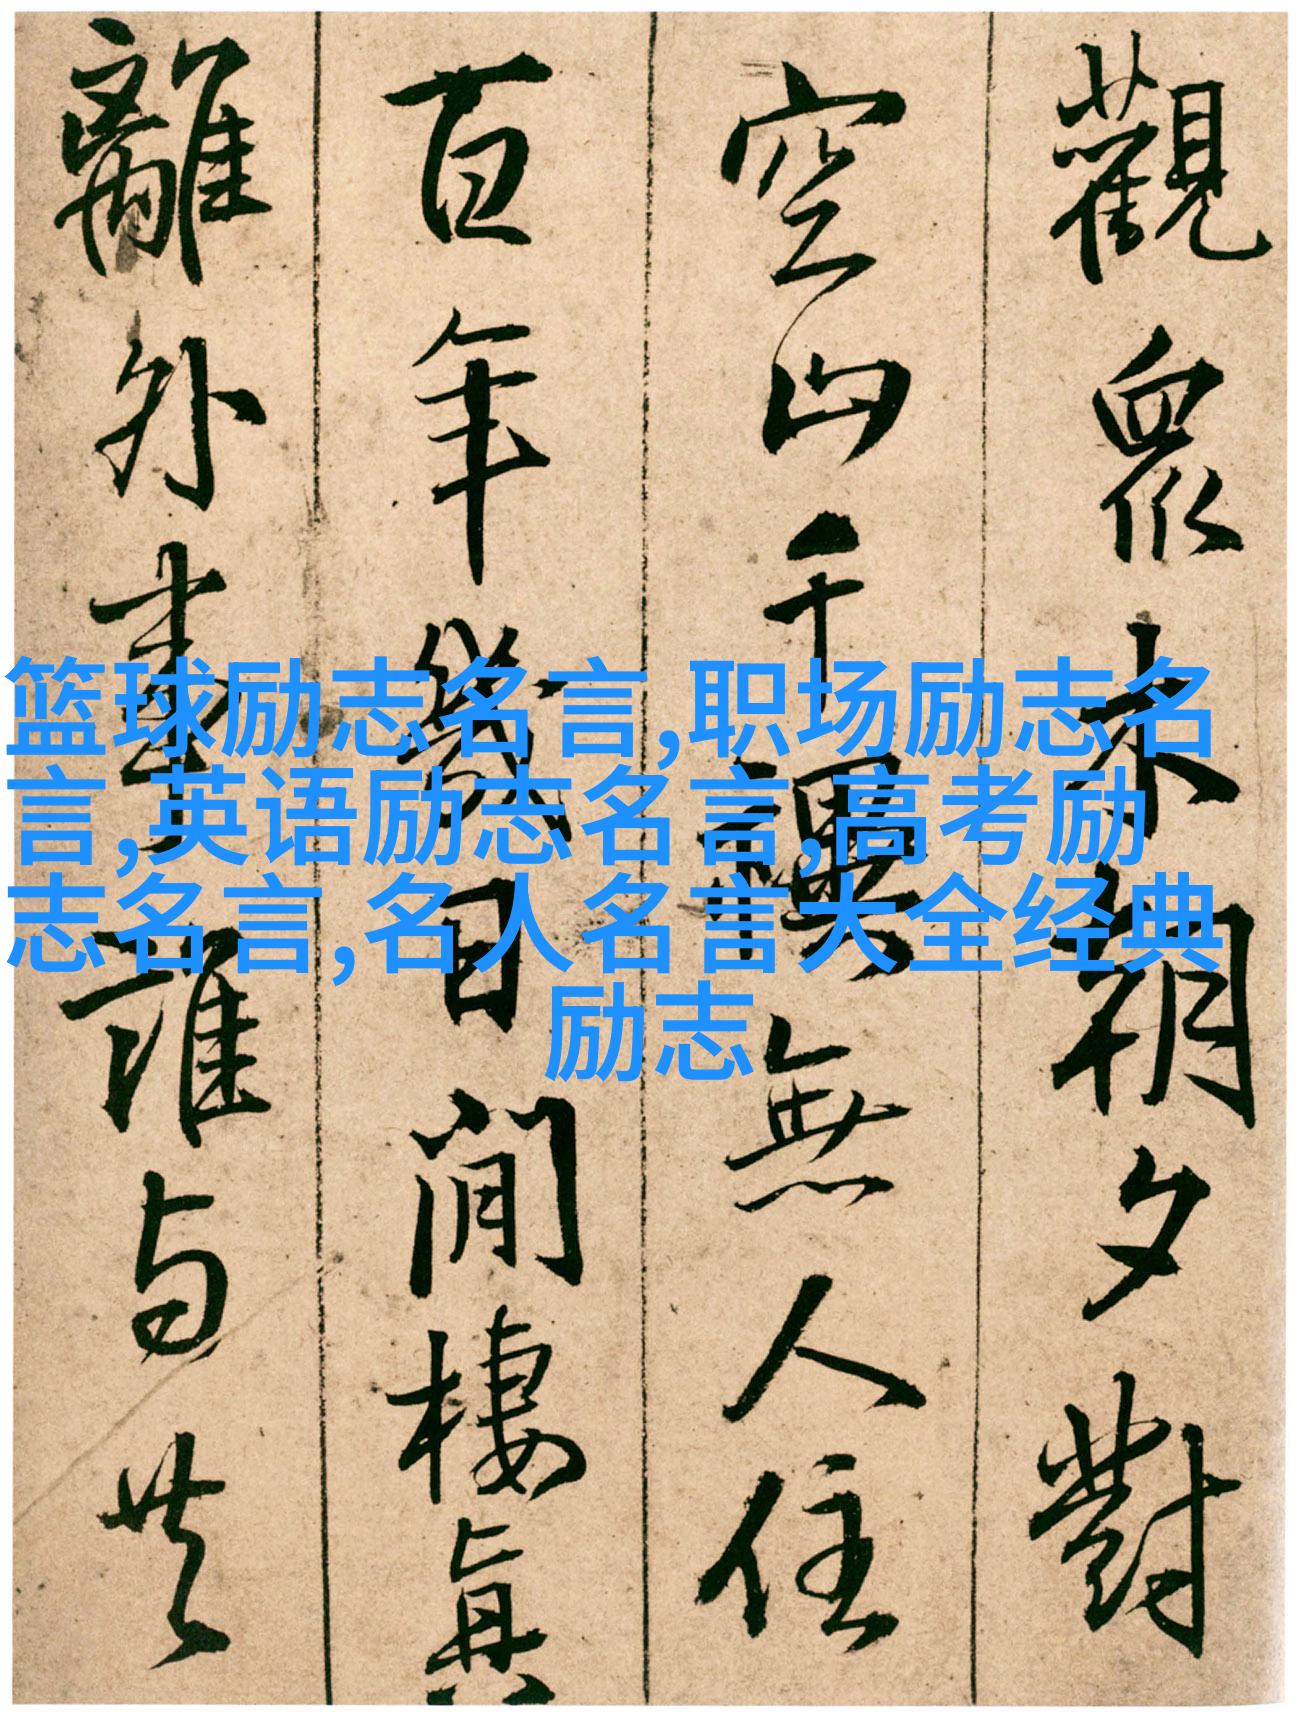 觀眾朝夕對
空山千禩無人住
百年幾日閒棲真
離外事誰与共
篮球励志名言,职场励志名
言,英语励志名言,高考励
志名言,名人名言大全经典
励志